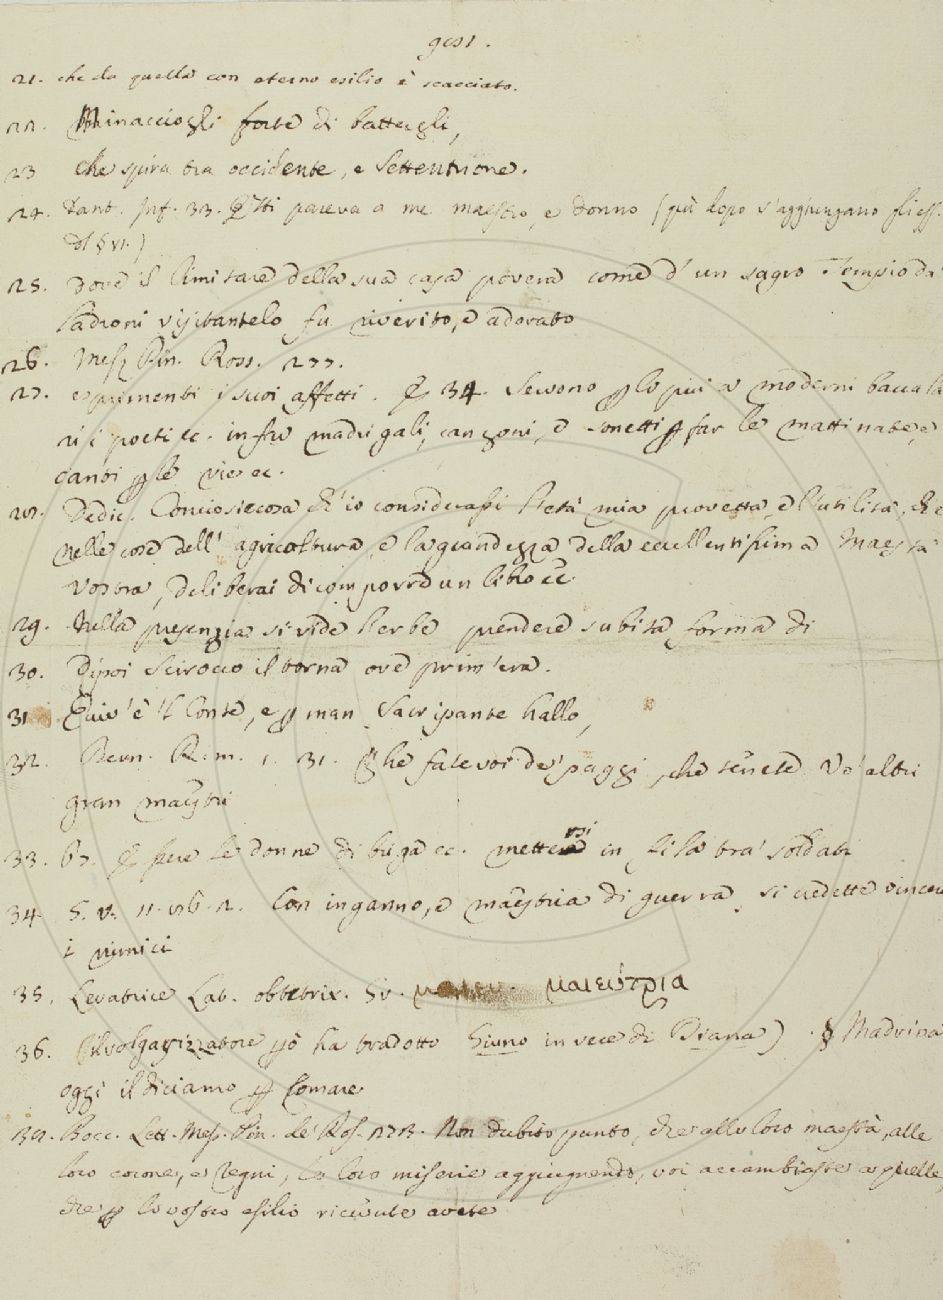 21. che da quella con eterno esilio è scacciato.
22. Minacciogli forte di battergli,
23 che spira tra occidente, e Settentrione.
24. Dant. Inf. 33. Questi pareva a me maestro, e donno (più dopo s'aggiungano
del § VI.)
25. Dove il limitare della sua casa povera come d'un sagro Tempio da'
Ladroni visitantelo fu riverito, e adorato
26. Mess. Pin. Ross. 277.
27. esprimenti i suoi affetti. E 34. Servono p lo più a' moderni baccala
ri i poeti ec. in far madrigali, canzoni, e sonetti p far le mattinate, e
canti p le vie ec.
28. Dedic. Conciosiecosa ch'io considerassi l'età mia provetta, e l'utilità, che
nelle cose dell'agricoltura, e la grandezza della eccellentissima Maestà
vostra, deliberai di comporre un libro ec
29. Nella presenzia si vide l'erbe prendere subita forma di
30. Dipoi Scirocco il torna ove prim'era.
31 Quiv'è 'l Conte, e p man Sacripante hallo,
32. Bern. Rim. 1. 31. Che fate voi de' paggi, che tenete Vo' altri
gran maestri
33. 67. E fece le donne di Buga ec. mettersi in fila tra' soldati
34 S. V. 11. 176. 2. Con inganno, e maestria di guerra si credette vincere
i nimici
35. Levatrice Lat. obstetrix. Gr. μαιεύτρια
36. (il volgarizzatore però ha tradotto Giuno in vece di Diana) . § Madrina
oggi il diciamo p Comare
39. Bocc. Lett. Mess. Pin. de' Ros. 273. Non dubito punto, che alla loro maestà, alle
loro corone, e regni, le loro miserie aggiugnendo, voi accambiaste a quelle,
che p lo vostro esilio ricevute avete